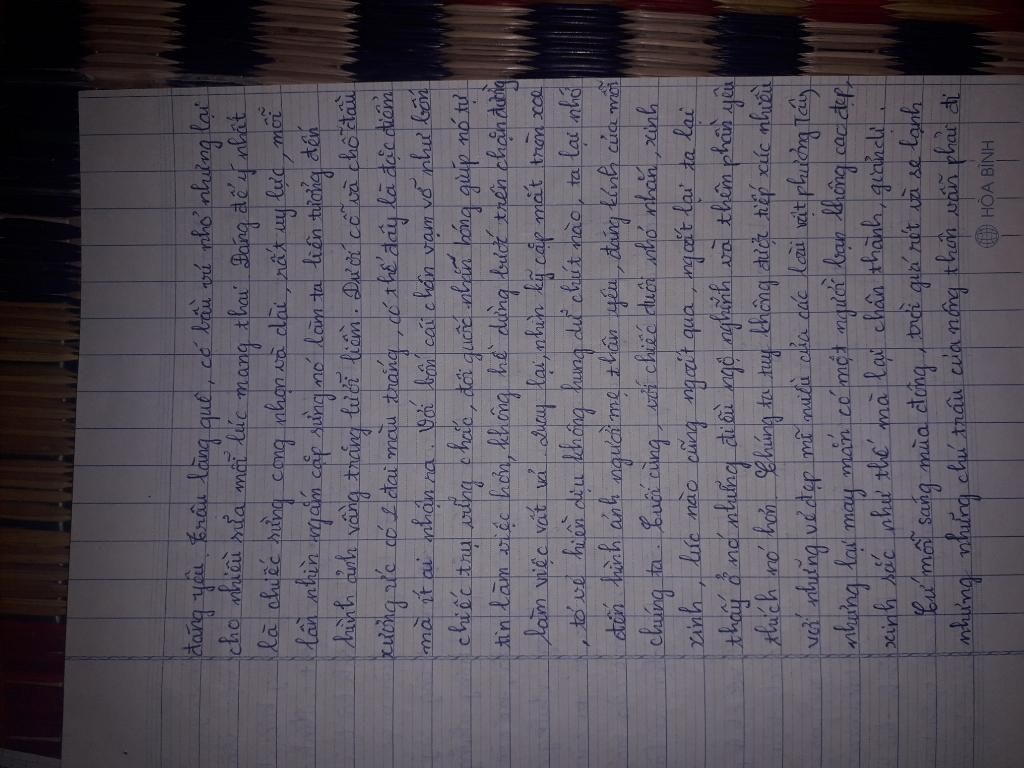 đáng yêu. Trâu làng quê, có bầu vú nhỏ nhưng lại
cho nhiều sữa mỗi lúc mang thai. Đáng để ý nhất
là chiếc sừng cong nhọn và dài, rất uy lực, mỗi
lần nhìn ngắm cặp sừng nó làm ta liên tưởng đến
hình ảnh vầng trăng lưỡi liềm. Dưới cổ và chỗ đầu
xương ức có 2 đai màu trắng, có thể đây là đặc điểm
mà ít ai nhận ra. Với bốn cái chân vạm vỡ như bốn
chiếc trụ vững chắc, đôi guốc nhẵn bóng giúp nó tự
tin làm việc hơn, không hề dừng bước trên chặn đường
làm việc vất vả. Quay lại, nhìn kỹ cặp mắt tròn xoe
, tỏ vẻ hiền dịu không hung dữ chút nào, ta lại nhớ
đến hình ảnh người mẹ thân yêu, đáng kính của mỗi
chúng ta. Cuối cùng, với chiếc đuôi nhỏ nhắn, xinh
xinh, lúc nào cũng ngoắt qua, ngoắt lại ta lại
thấy ở nó những điều ngộ nghĩnh và thêm phần yêu
thích nó hơn. Chúng ta tuy không được tiếp xúc nhiều
với những vẻ đẹp mĩ miều của các loài vật phương Tây,
nhưng lại may mắn có một người bạn không cao đẹp,
xinh sắc như thế mà lại chân thành, giản dị.
Cứ mỗi sáng mùa đông, trời giá rét và se lạnh
nhưng những chú trâu của nông thôn vẫn phải đi
HÒA BÌNH